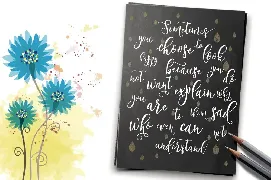 Sometimes
you choose to look
happy because you do
not want explain why
you are to them sad
who even can not
understand